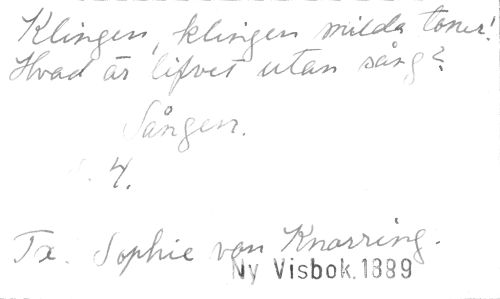 Klingen, klingen milda toner!
Hvad är lifvet utan sång?
Sången.
4.
Tx. Sophie von Knorring.
Ny Visbok. 1889